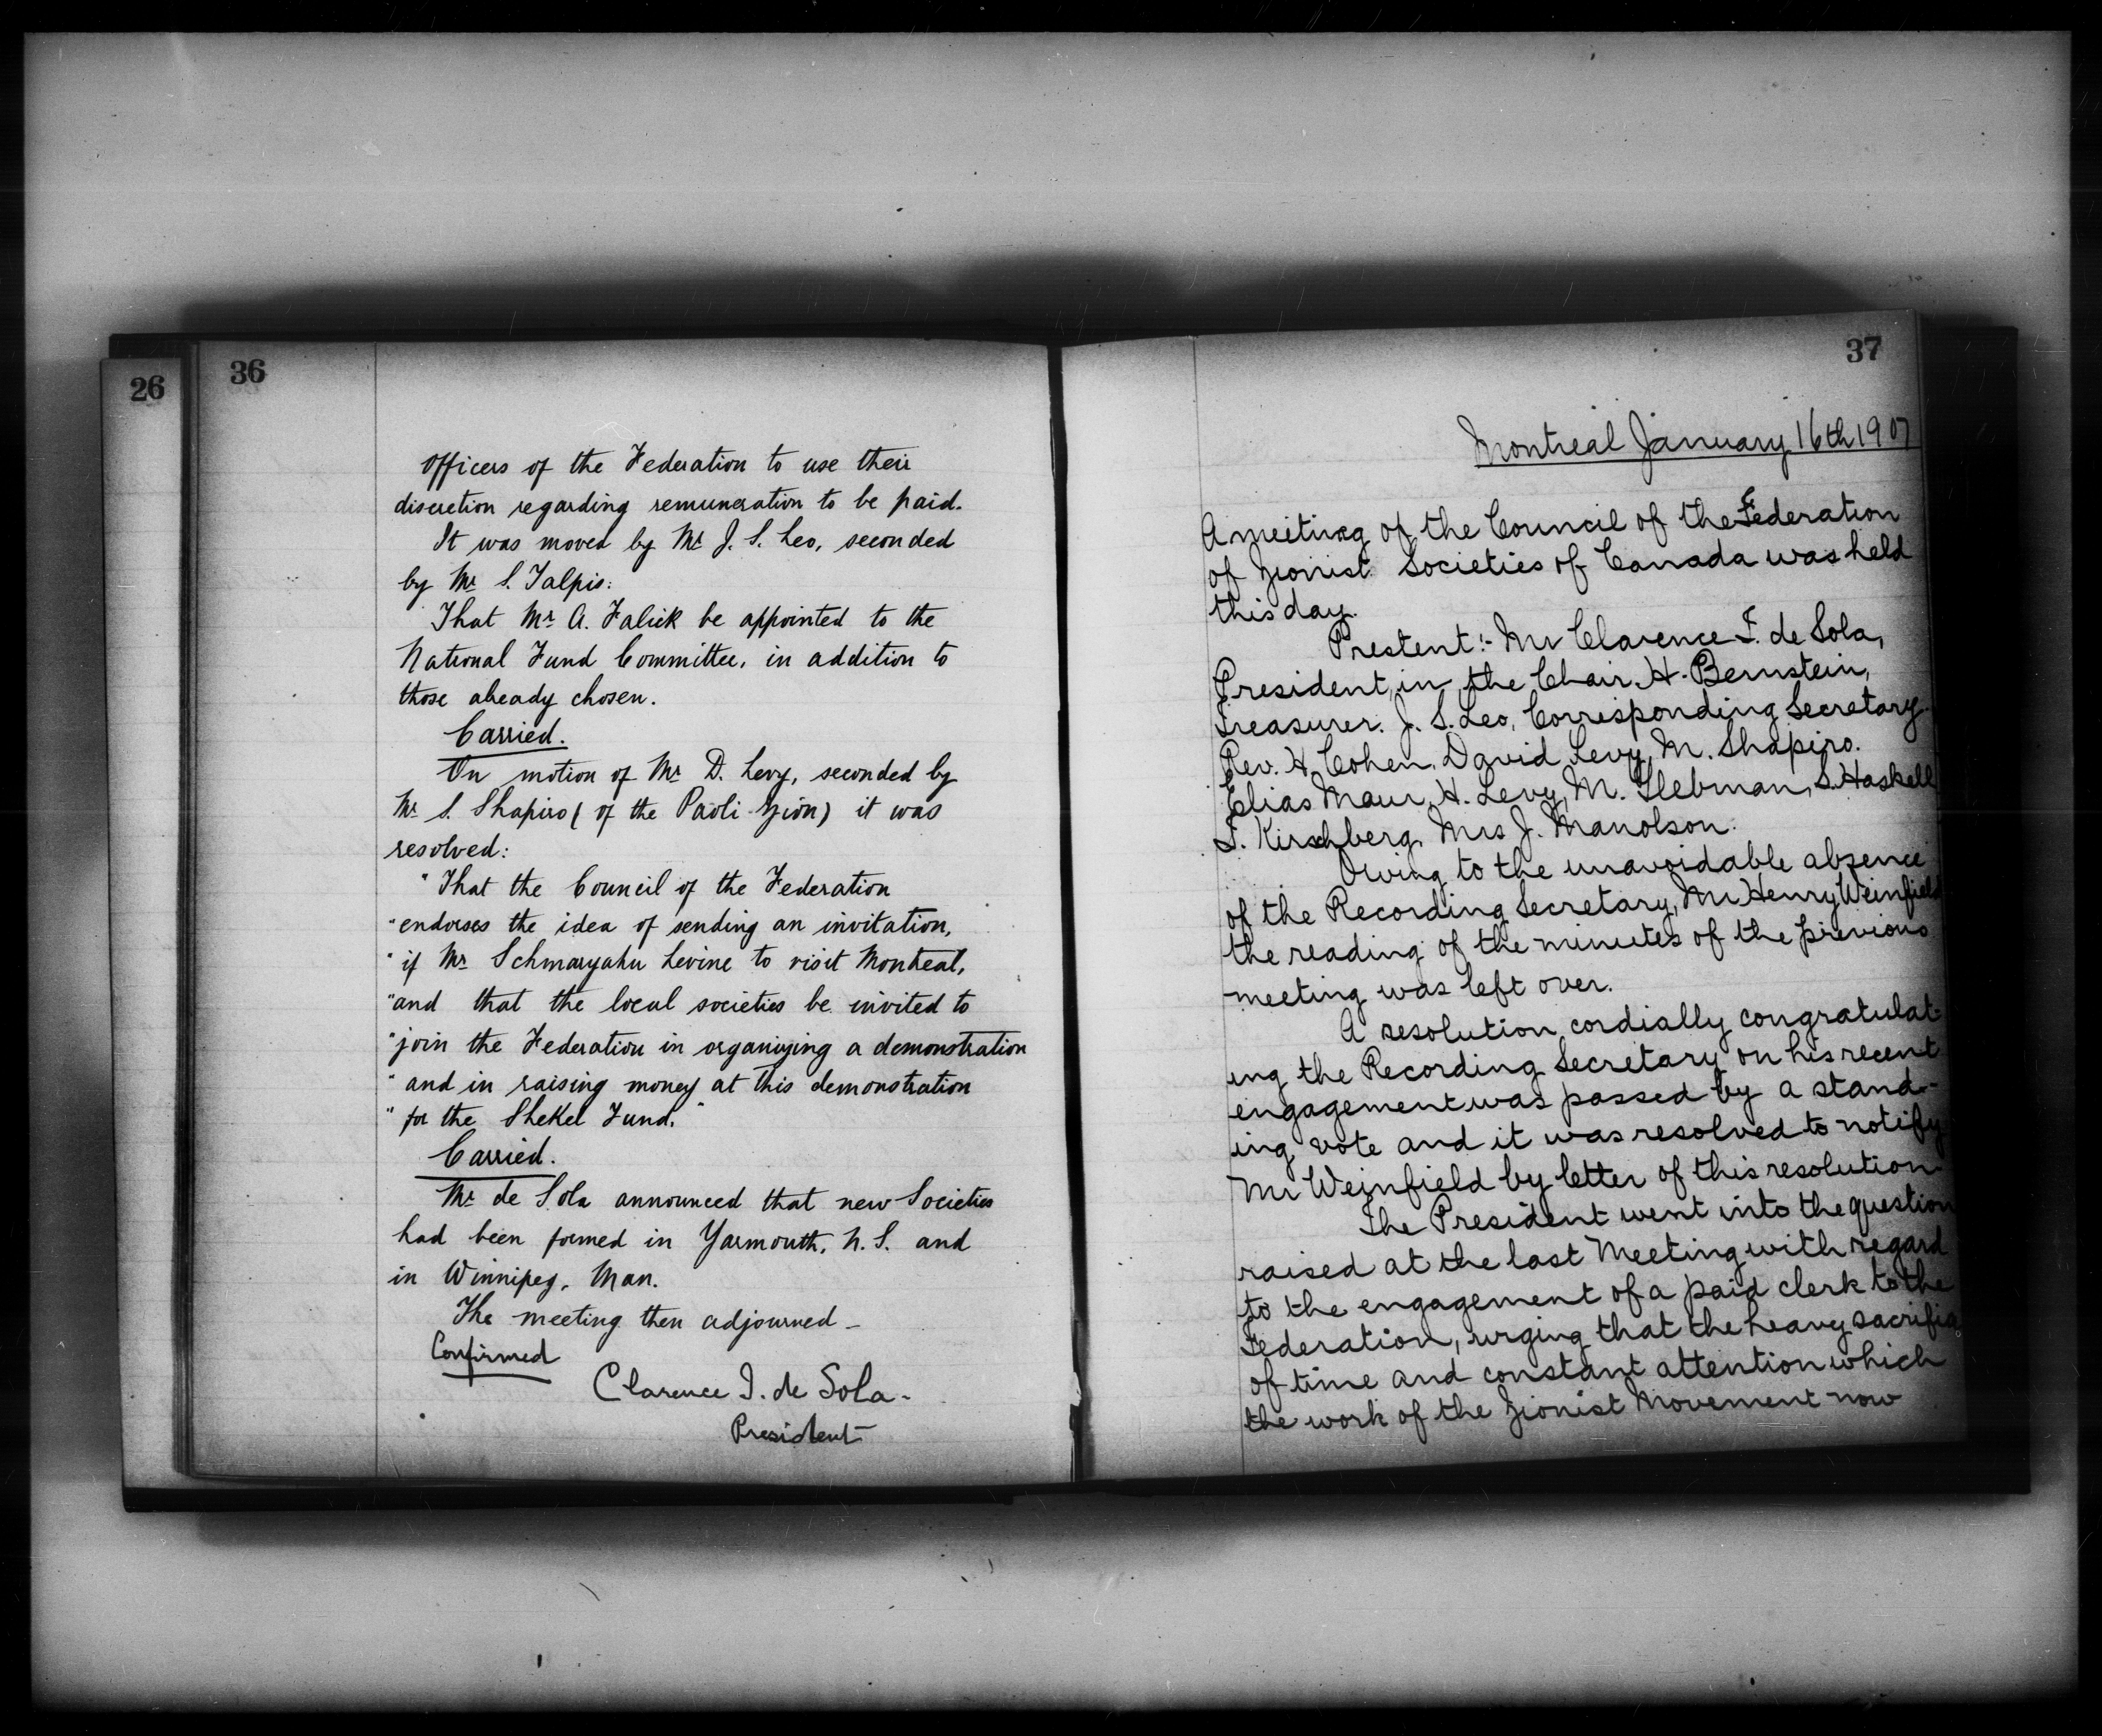 26
36
Officers of the Federation to use their
discretion regarding remuneration to be paid.
It was moved by Mr J. S. Leo, seconded
by Mr S. Talpis:
That Mr A. Falick be appointed to the
National Fund Committee, in addition to
those already chosen.
Carried.
On motion of Mr D. Levy, seconded by
Mr S. Shapiro (of the Paoli Zion) it was
resolved:
"That the Council of the Federation
"endorses the idea of sending an invitation,
"if Mr Schmaryahu Levine to visit Montreal,
"and that the local societies be invited to
"join the Federation in organizing a demonstration
"and in raising money at this demonstration
"for the Shekel Fund."
Carried.
Mr de Sola announced that new Societies
had been formed in Yarmouth, N. S. and
in Winnipeg, Man.
The meeting then adjourned –
Confirmed
Clarence I. de Sola –
President
37
Montreal January 16th 1907
A meeting of the Council of the Federation
of Zionist Societies of Canada was held
this day.
Prestent:- Mr Clarence I. de Sola,
President, in the Chair, H. Bernstein,
Treasurer. J. S. Leo, Corresponding Secretary.
Rev. H. Cohen, David Levy, M. Shapiro.
Elias Maur, H. Levy, M. Slebman, S. Haskell
I. Kirschberg, Mrs J. Manolson.
Owing to the unavoidable absence
of the Recording Secretary, Mr Henry Weinfield
the reading of the minutes of the previous
meeting was left over.
A resolution cordially congratulat-
ing the Recording Secretary on his recent
engagement was passed by a stand-
ing vote and it was resolved to notify
Mr Weinfield by letter of this resolution.
The President went into the question
raised at the last Meeting with regard
to the engagement of a paid clerk to the
Federation, urging that the heavy sacrifice
of time and constant attention which
the work of the Zionist Movement now